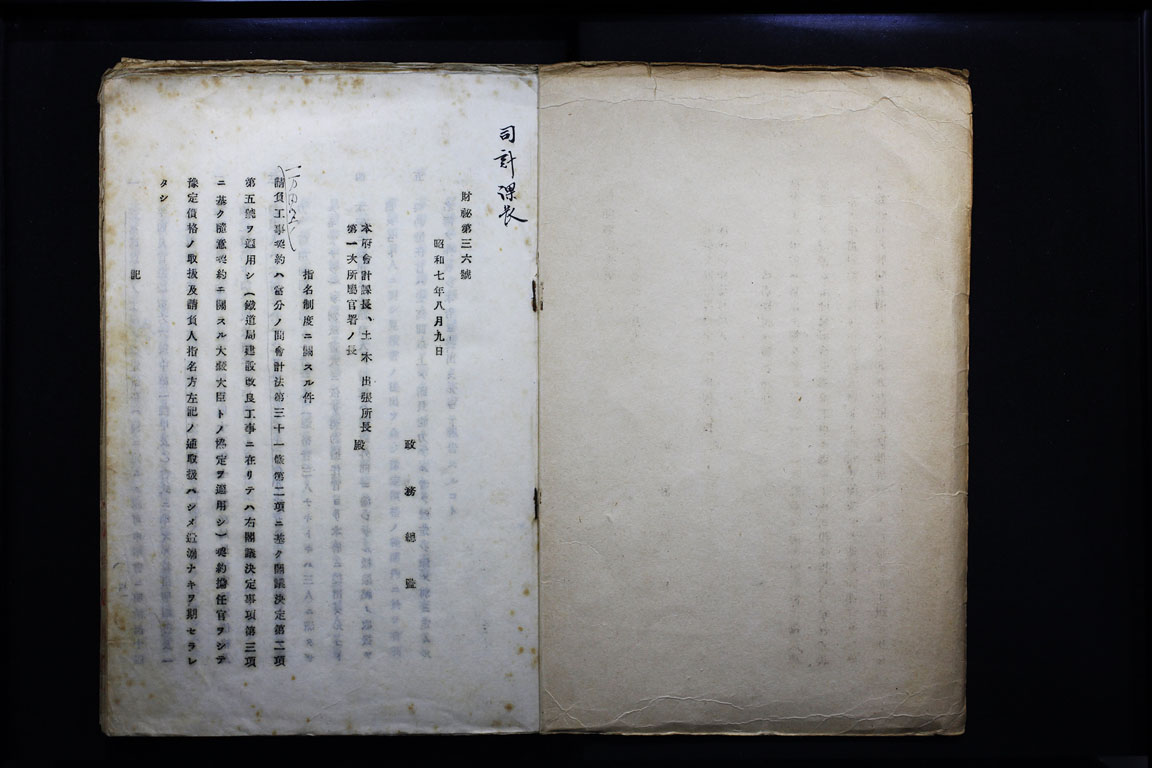 司計課長
財祕第三六號
昭和七年八月九日
政務總監
本府會計課長、土木出張所長
第一次所屬官署ノ長
殿
指名制度ニ關スル件
請負工事契約ハ當分ノ間會計法第三十一條第二項ニ基ク閣議決定第二項
第五號ヲ適用シ（鐵道局建設改良工事ニ在リテハ右閣議決定事項第三項
ニ基ク隨意契約ニ關スル大藏大臣トノ協定ヲ適用シ）契約擔任官ヲシテ
豫定價格ノ取扱及請負人指名方左記ノ通取扱ハシメ遺漏ナキヲ期セラレ
タシ
記